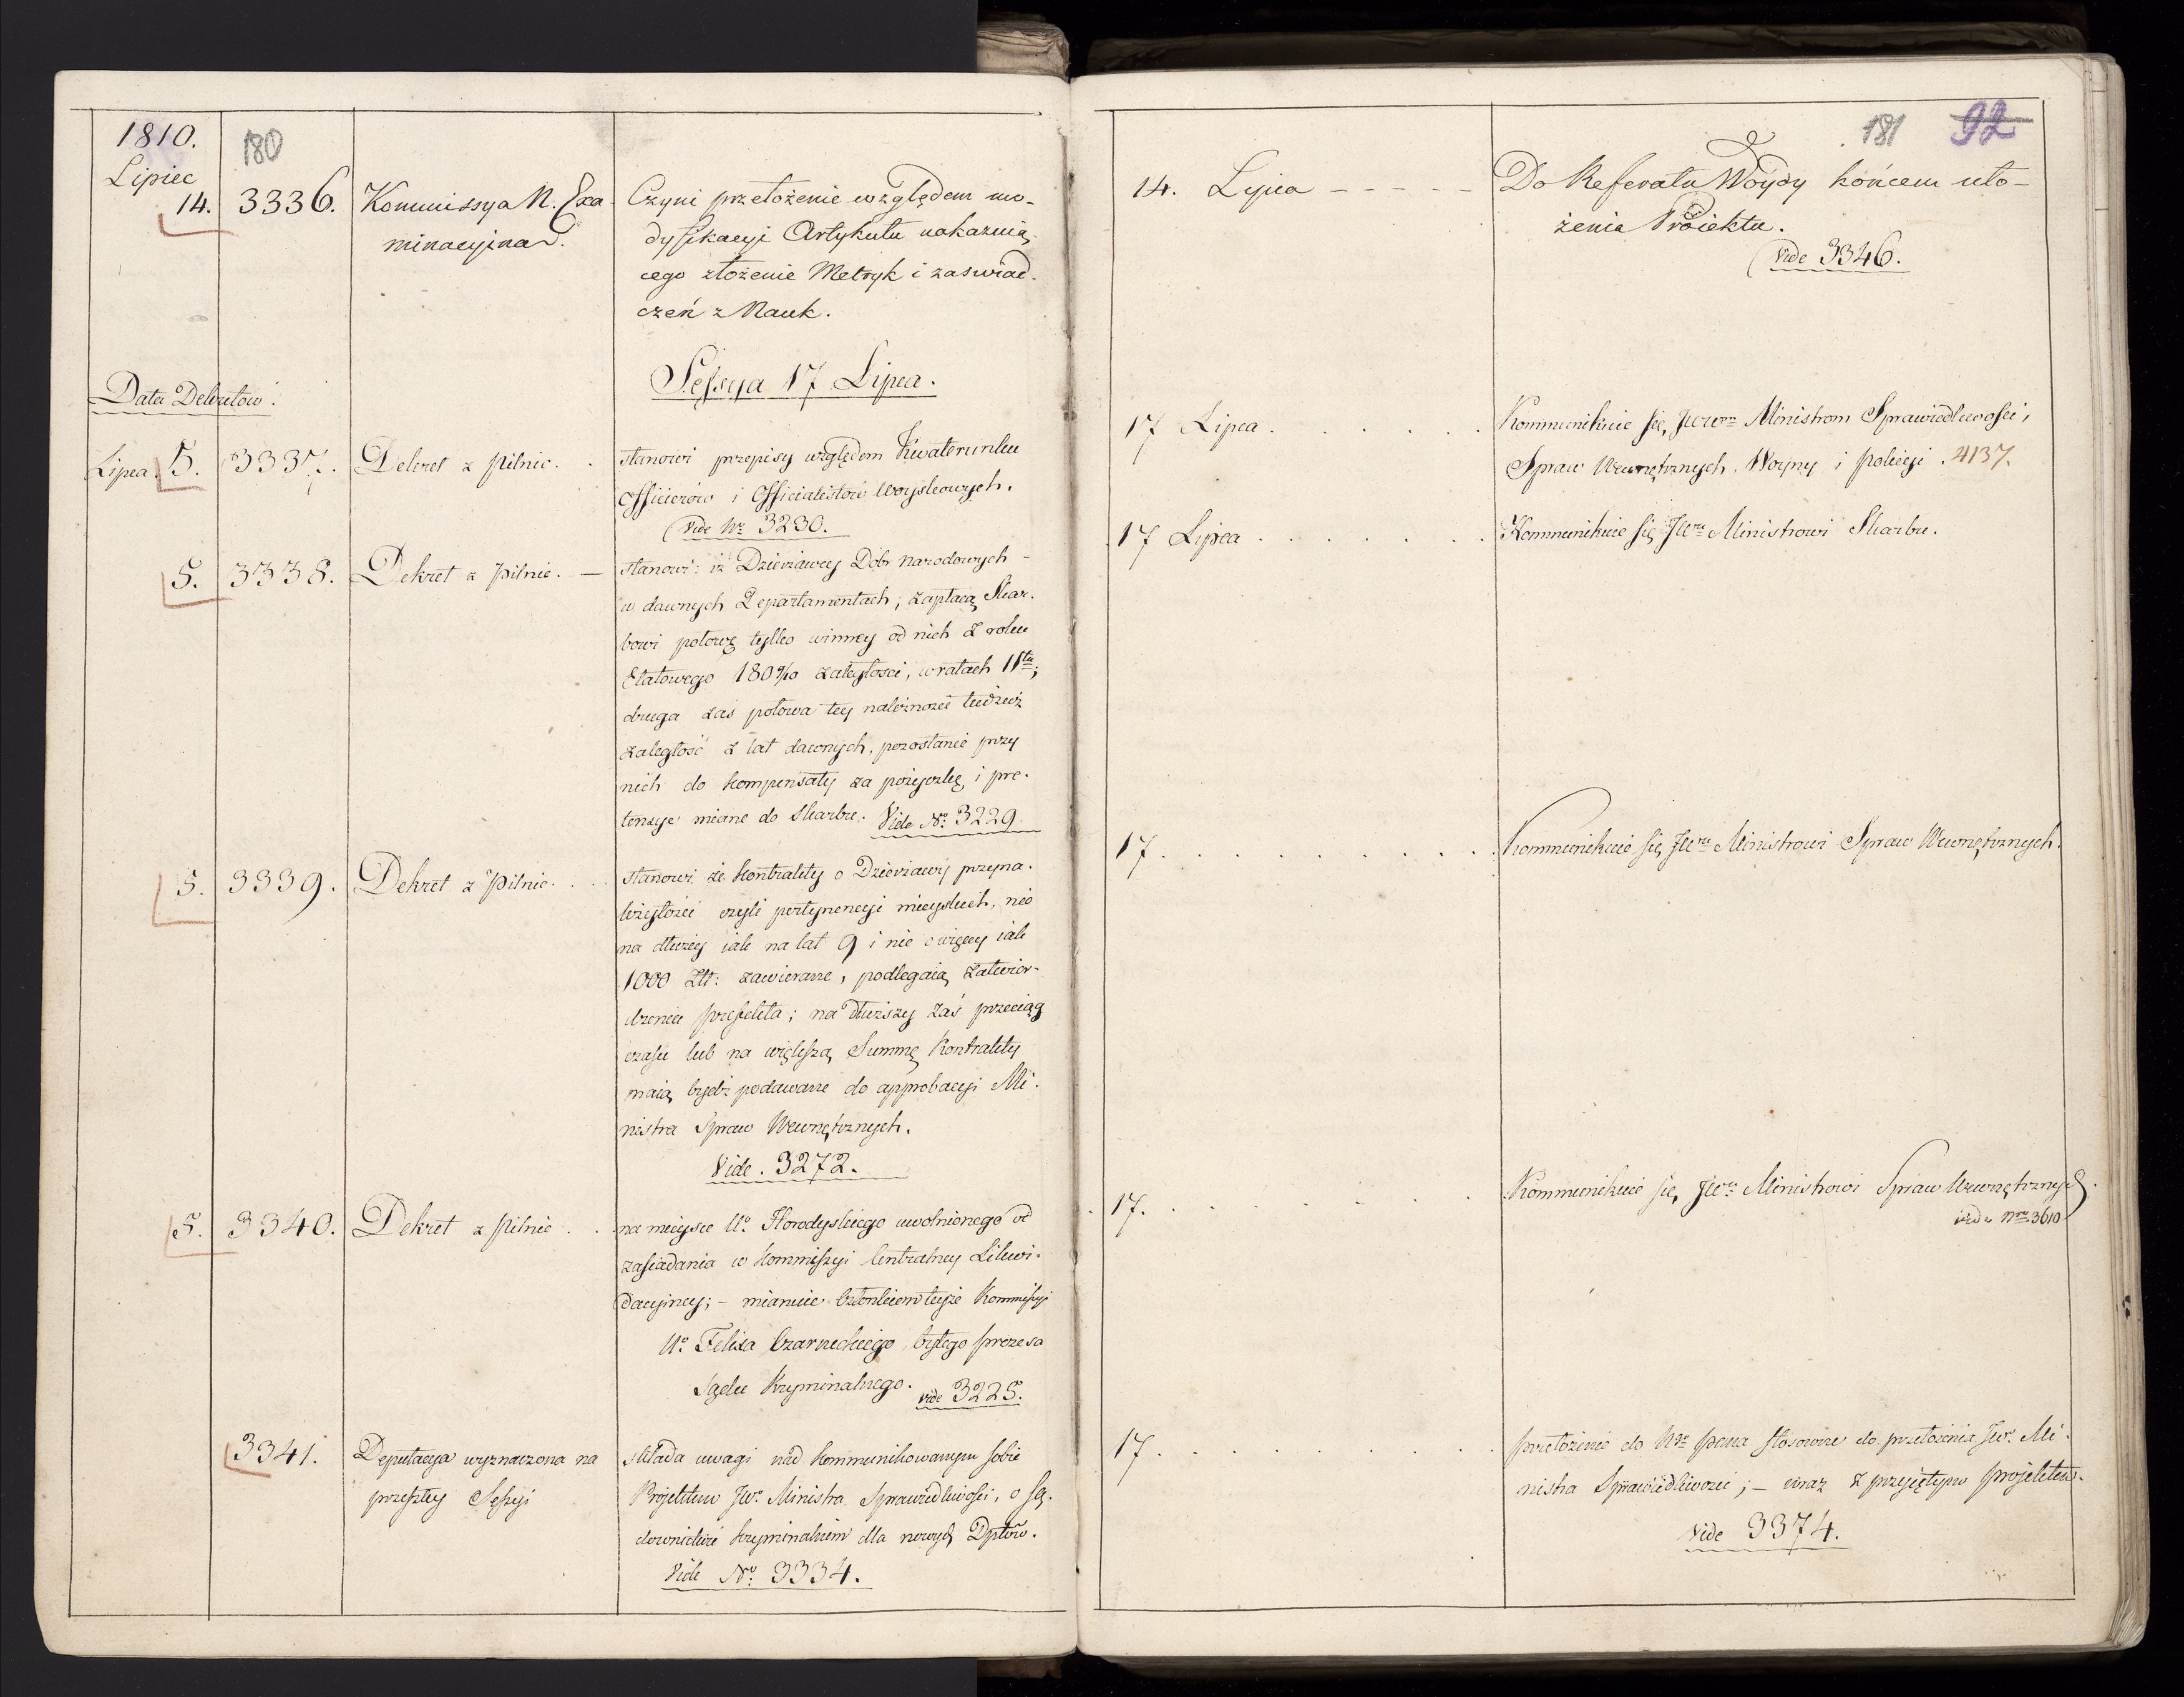 1810.
180
Lipiec
14. 3336. Kommissya N. Exa-
minacyina.
Czyni przełożenie względem mo-
dyfikacyi Artykułu nakazuią-
cego złożenie Metryk i zaswiad-
czeń z Nauk.
Sessya 17 Lipca.
Data Dekretów.
Lipca 5. 3337. Dekret z Pilnic. .
stanowi przepisy względem Kwaterunku
Officierów i Officialistów Woyskowych.
Vide Nr 3230.
5. 3338. Dekret z Pilnic. —
stanowi: iż Dzierzawcy Dobr Narodowych
w dawnych Departamentach; zapłacą Skar-
bowi połowę tylko winney od nich z roku
Etatowego 1809/10 zaległosci, w ratach 11tu;
druga zas połowa tey należnosci tudzież
zaległość z lat dawnych, pozostanie przy
nich do kompensaty za pożyczkę i pre-
tensye miane do Skarbu. Vide No: 3229.
5. 3339. Dekret z Pilnic. . .
stanowi że kontrakty o Dzierzawy przyna-
leżytości czyli pertynencyi mieyskich, nie
na dłużey iak na lat 9 i nie o więcey iak
1000 Złt: zawierane, podlegaią zatwier-
dzeniu prefekta; na dłuższy zaś przeciąg
czasu lub na większą Summę Kontrakty
maią bydź podawane do approbacyi Mi-
nistra Spraw Wewnętrznych.
Vide. 3272.
5. 3340. Dekret z Pilnic . .
na mieysce Uo. Horodyskiego uwolnionego od
zasiadania w Kommissyi Centralney Likwi-
dacyiney; – mianuie Członkiem teyże Kommissyi
Uo. Felixa Czarneckiego, byłego prezesa
Sądu Kryminalnego. vide 3225.
3341. Deputacya wyznaczona na
przeszłey Sessyi
składa uwagi nad kommunikowanym sobie
Projektem JWo. Ministra Sprawiedliwości, o Są-
downictwie kryminalnem dla nowych Dptów.
Vide No: 3334.
181 92
14. Lipca - - - - -
Do Referatu Woydy końcem uło-
żenia Proiektu.
Vide 3346.
17 Lipca . . . . . .
Kommunikuie się JWWm Ministrom Sprawiedliwości,
Spraw Wewnętrznych, Woyny i Policyi. 4137.
17 Lipca . . . . . . .
Kommunikuie się JWmu Ministrowi Skarbu.
17. . . . . . . . . .
Kommunikuie się JWmu Ministrowi Spraw Wewnętrznych.
17. . . . . . . .
Kommunikuie się JWmu Ministrowi Spraw Wewnętrznych.
vide Nro 3610
17. . . . . . . . .
przełożenie do Ngo Pana stosowne do przełożenia JWo. Mi-
nistra Sprawiedliwości; – wraz z przyiętym projektem.
Vide 3374.